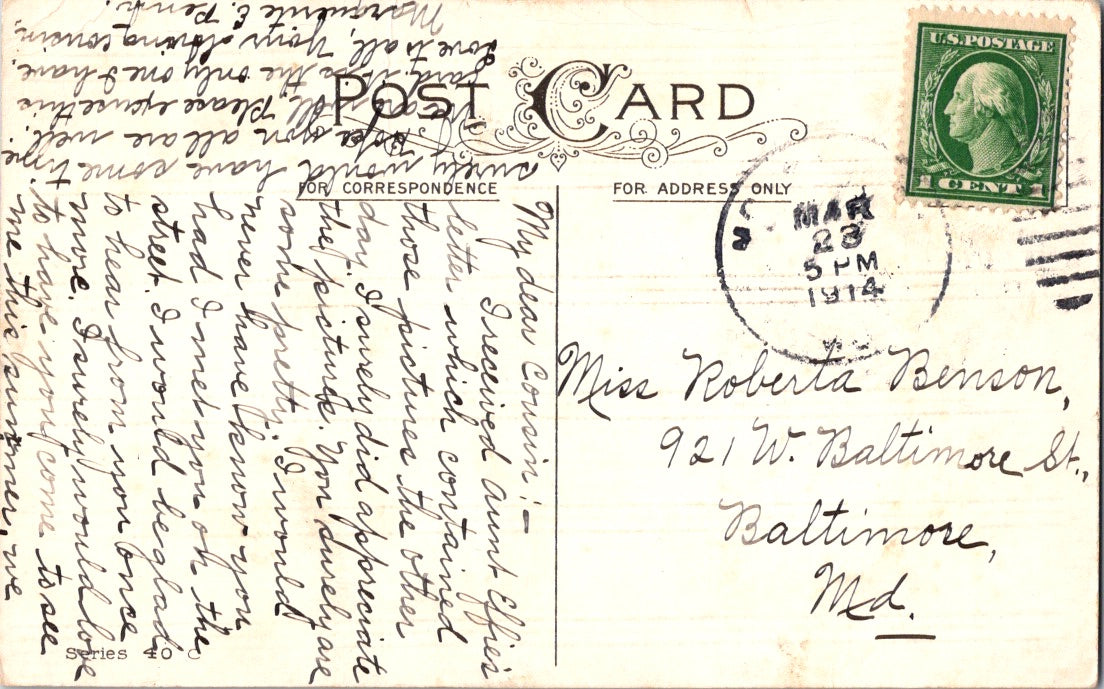 POST CARD
FOR CORRESPONDENCE
FOR ADDRESS ONLY
U.S. POSTAGE
1 CENT 1
MAR
23
5 PM
1914
Miss Roberta Benson,
921 W. Baltimore St.,
Baltimore,
Md.
My dear Cousin:—
I received aunt Effies
letter which contained
those pictures the other
day. I surely did appreciate
the picture. You surely are
some pretty. I would
never have know you
had I met you on the
street. I would be glad
to hear from you once
more. I surely would love
to have you come to see
me this summer, we
surely would have some time
Hope you all are well.
Please excuse this
card, it is the only one I have.
Love to all, Your loving cousin,
Marguerite E. Penn.
Series 40 C